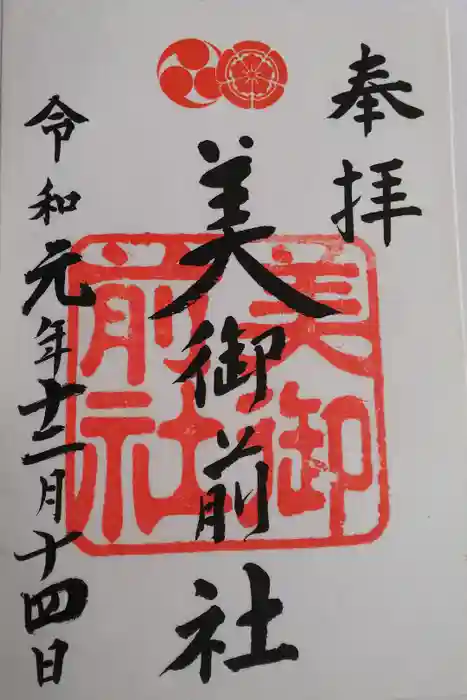 奉拝
美御前社
美御
前社
令和元年十二月十四日